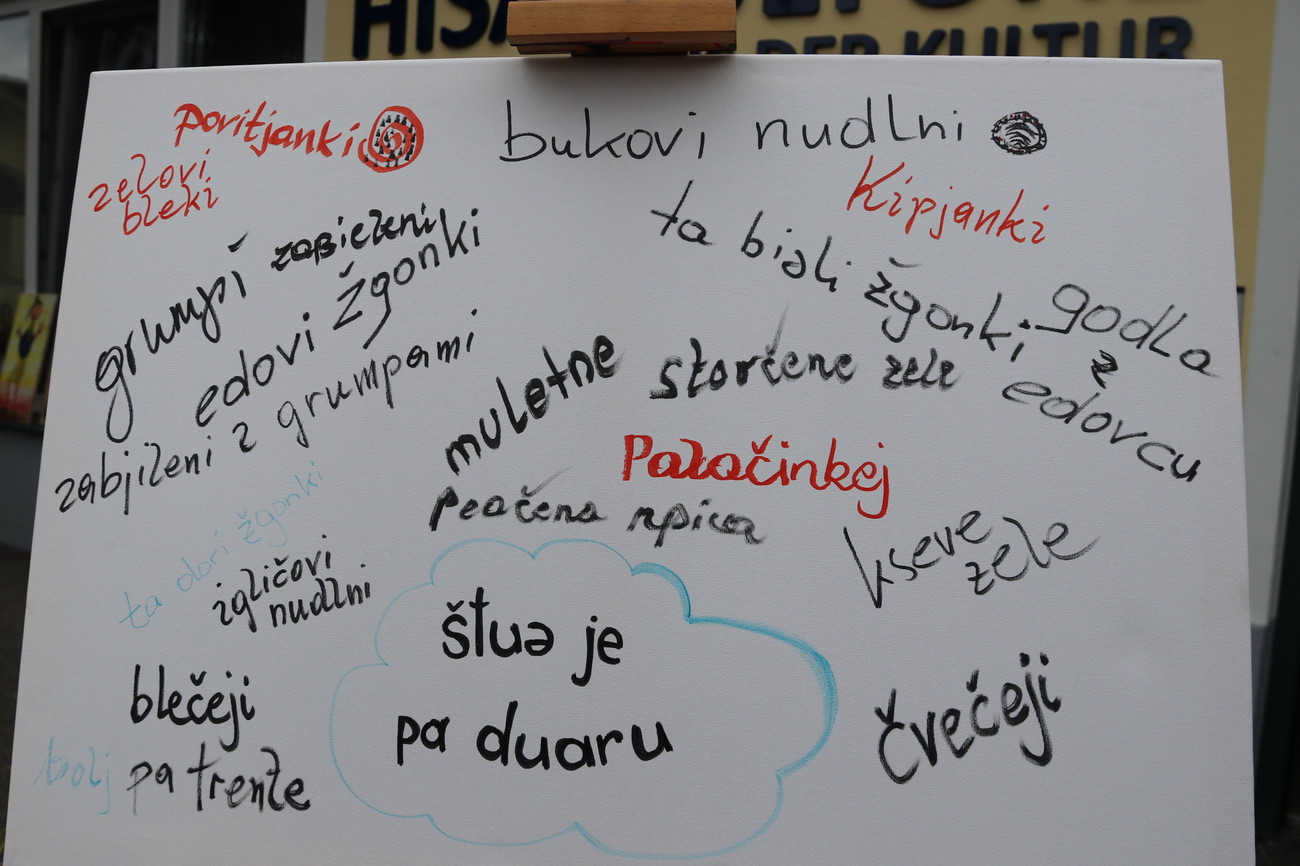 HIŠA
DER KULTUR
Poritjanki
bukovi nudlni
zelovi
bleki
Kipjanki
ta biəli žgonki
grumpi zabieleni
edovi žgonki
zabjileni z grumpami
godla
z
edovcu
muletne
storčene zele
Palačinkej
peačena
kseve
zele
ta dori žgonki
igličovi
nudlni
štuə je
pa duaru
blečeji
bolj pa trente
čvečeji